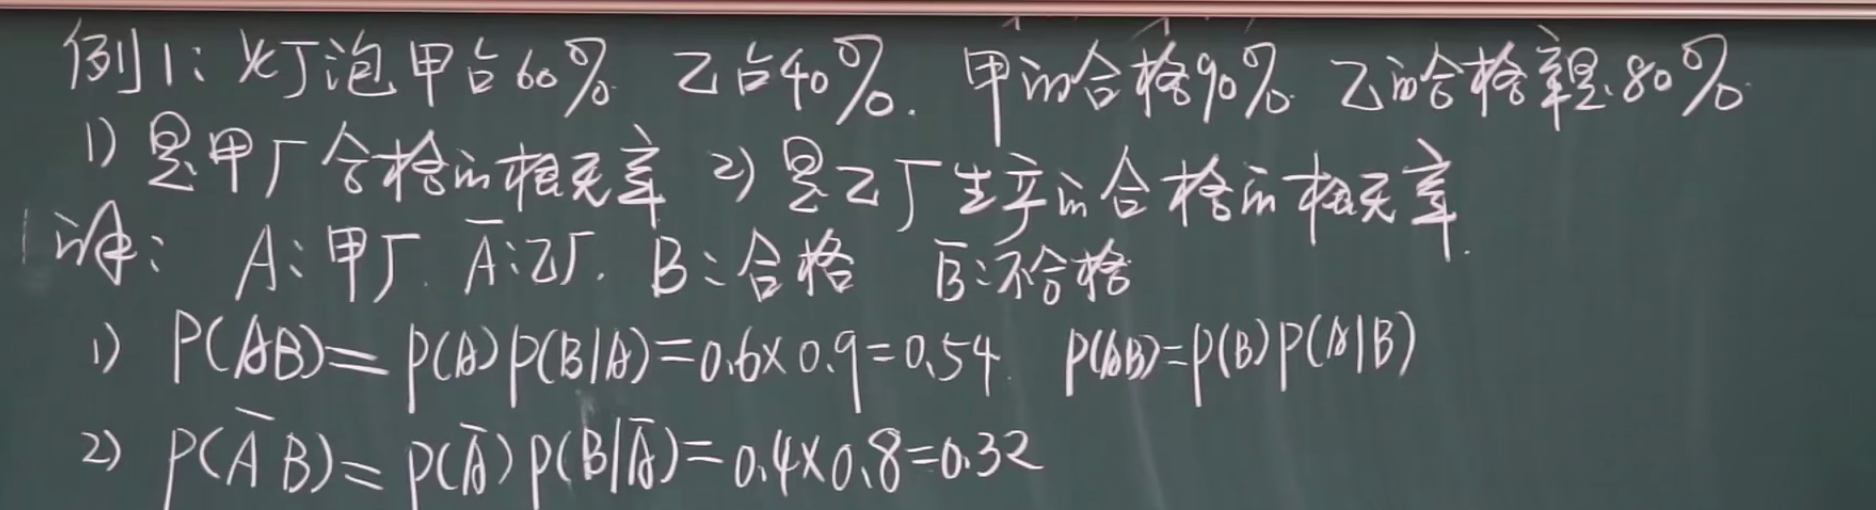 例1：灯泡甲占60% 乙占40%. 甲的合格90% 乙的合格率是80%
1) 是甲厂合格的概率 2) 是乙厂生产的合格的概率.
设： A：甲厂. Ā：乙厂. B：合格 B̄：不合格
1) P(AB)=P(A)P(B|A)=0.6×0.9=0.54 P(AB)=P(B)P(A|B)
2) P(ĀB)=P(Ā)P(B|Ā)=0.4×0.8=0.32